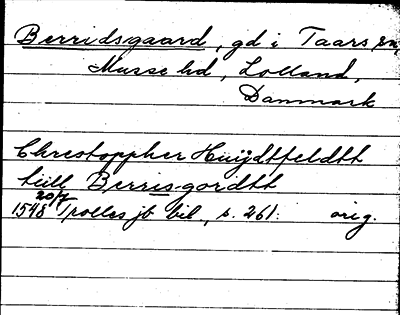 Berridsgaard, gd i Taars sn,
Musse hd, Lolland,
Danmark
Chrestoppher Huÿdtfeldtt
tiill Berris-gordtt
20/7
1548 Trolles jb bil., s. 261. orig.